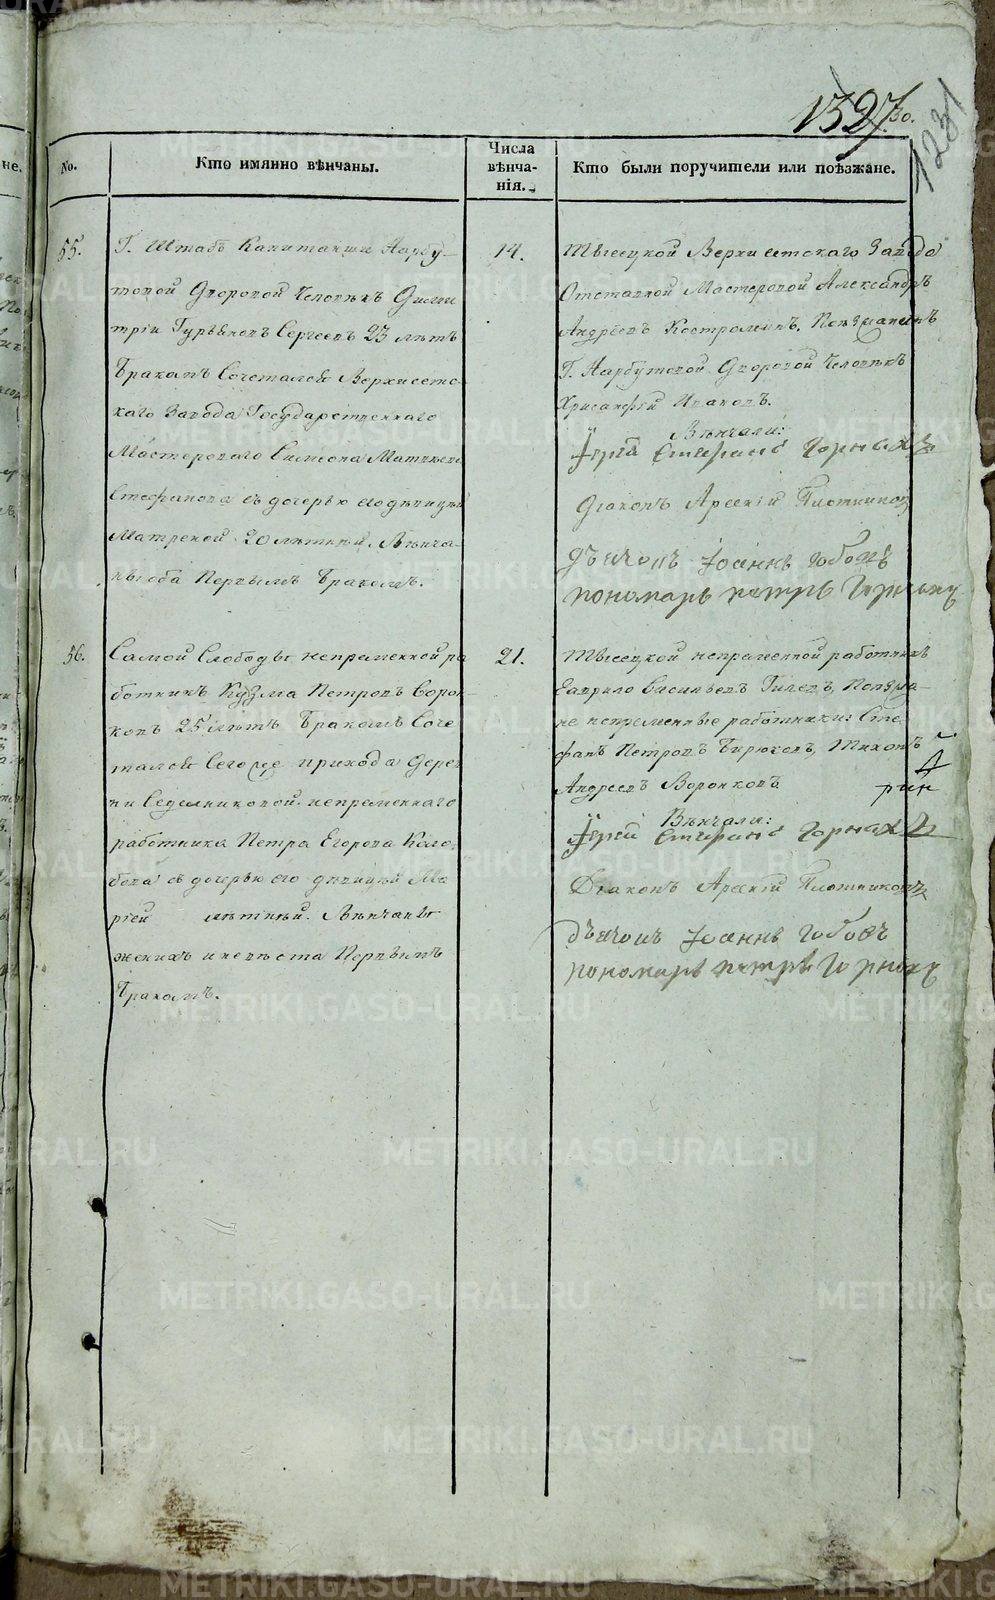 1327
30.
1231
No.
Кто имянно вѣнчаны.
Числа вѣнча-нія.
Кто были поручители или поѣзжане.
55.
Г. Штабъ Капитанши Нарбу-
товой Дворовой Человѣкъ Дими
трій Гурьяновъ Сергеевъ 23 лѣтъ
Бракомъ Сочетался Верхисетс-
каго Завода Государственнаго
Мастероваго Симеона Матвѣева
Стефанова съ дочерью его дѣвицей
Матреной 20 лѣтней. Вѣнча-
ны оба Первымъ Бракомъ.
14.
Тысецкой Верхисетскаго Завода
Отставной Мастеровой Александръ
Андреевъ Костроминъ, Поѣзжанинъ
Г. Нарбутовой Дворовой Человѣкъ
Хрисанфій Ивановъ.
Вѣнчали:
Іерей Стефанъ Горныхъ
Діаконъ Арсеній Плотниковъ
дьячокъ Іоаннъ
пономарь петръ Горныхъ
56.
Самой Слободы непременной ра
ботникъ Кузма Петровъ Сорок-
ковъ 25 лѣтъ Бракомъ Соче
тался Сегоже прихода Дерев
ни Седельниковой непременнаго
работника Петра Егорова Коло-
бова съ дочерью его дѣвицей Ма
ріей лѣтней. Вѣнчаны
женихъ и невѣста Первымъ
Бракомъ.
21.
Тысецкой непременной работникъ
Гаврило Васильевъ Гилевъ, Поѣзжа-
не непременные работники: Сте
фанъ Петровъ Бирюковъ, Тихонъ
Андреевъ Воронковъ
Вѣнчали:
Іерей Стефанъ Горныхъ
Діаконъ Арсеній Плотниковъ
дьячокъ Іоаннъ
пономарь петръ Горныхъ
METRIKI.GASO-URAL.RU